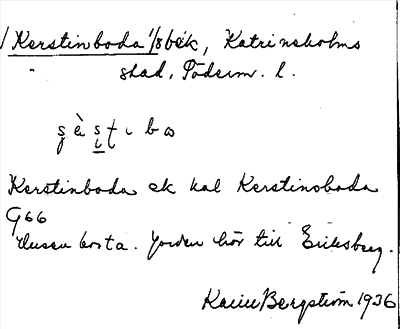 Kerstinboda 1/8 bek, Katrineholms
stad, Söderm. l.
Kerstinboda ek kal Kerstinsboda
G66
Husen borta. Jorden hör till Eriksberg.
Bergström 1936